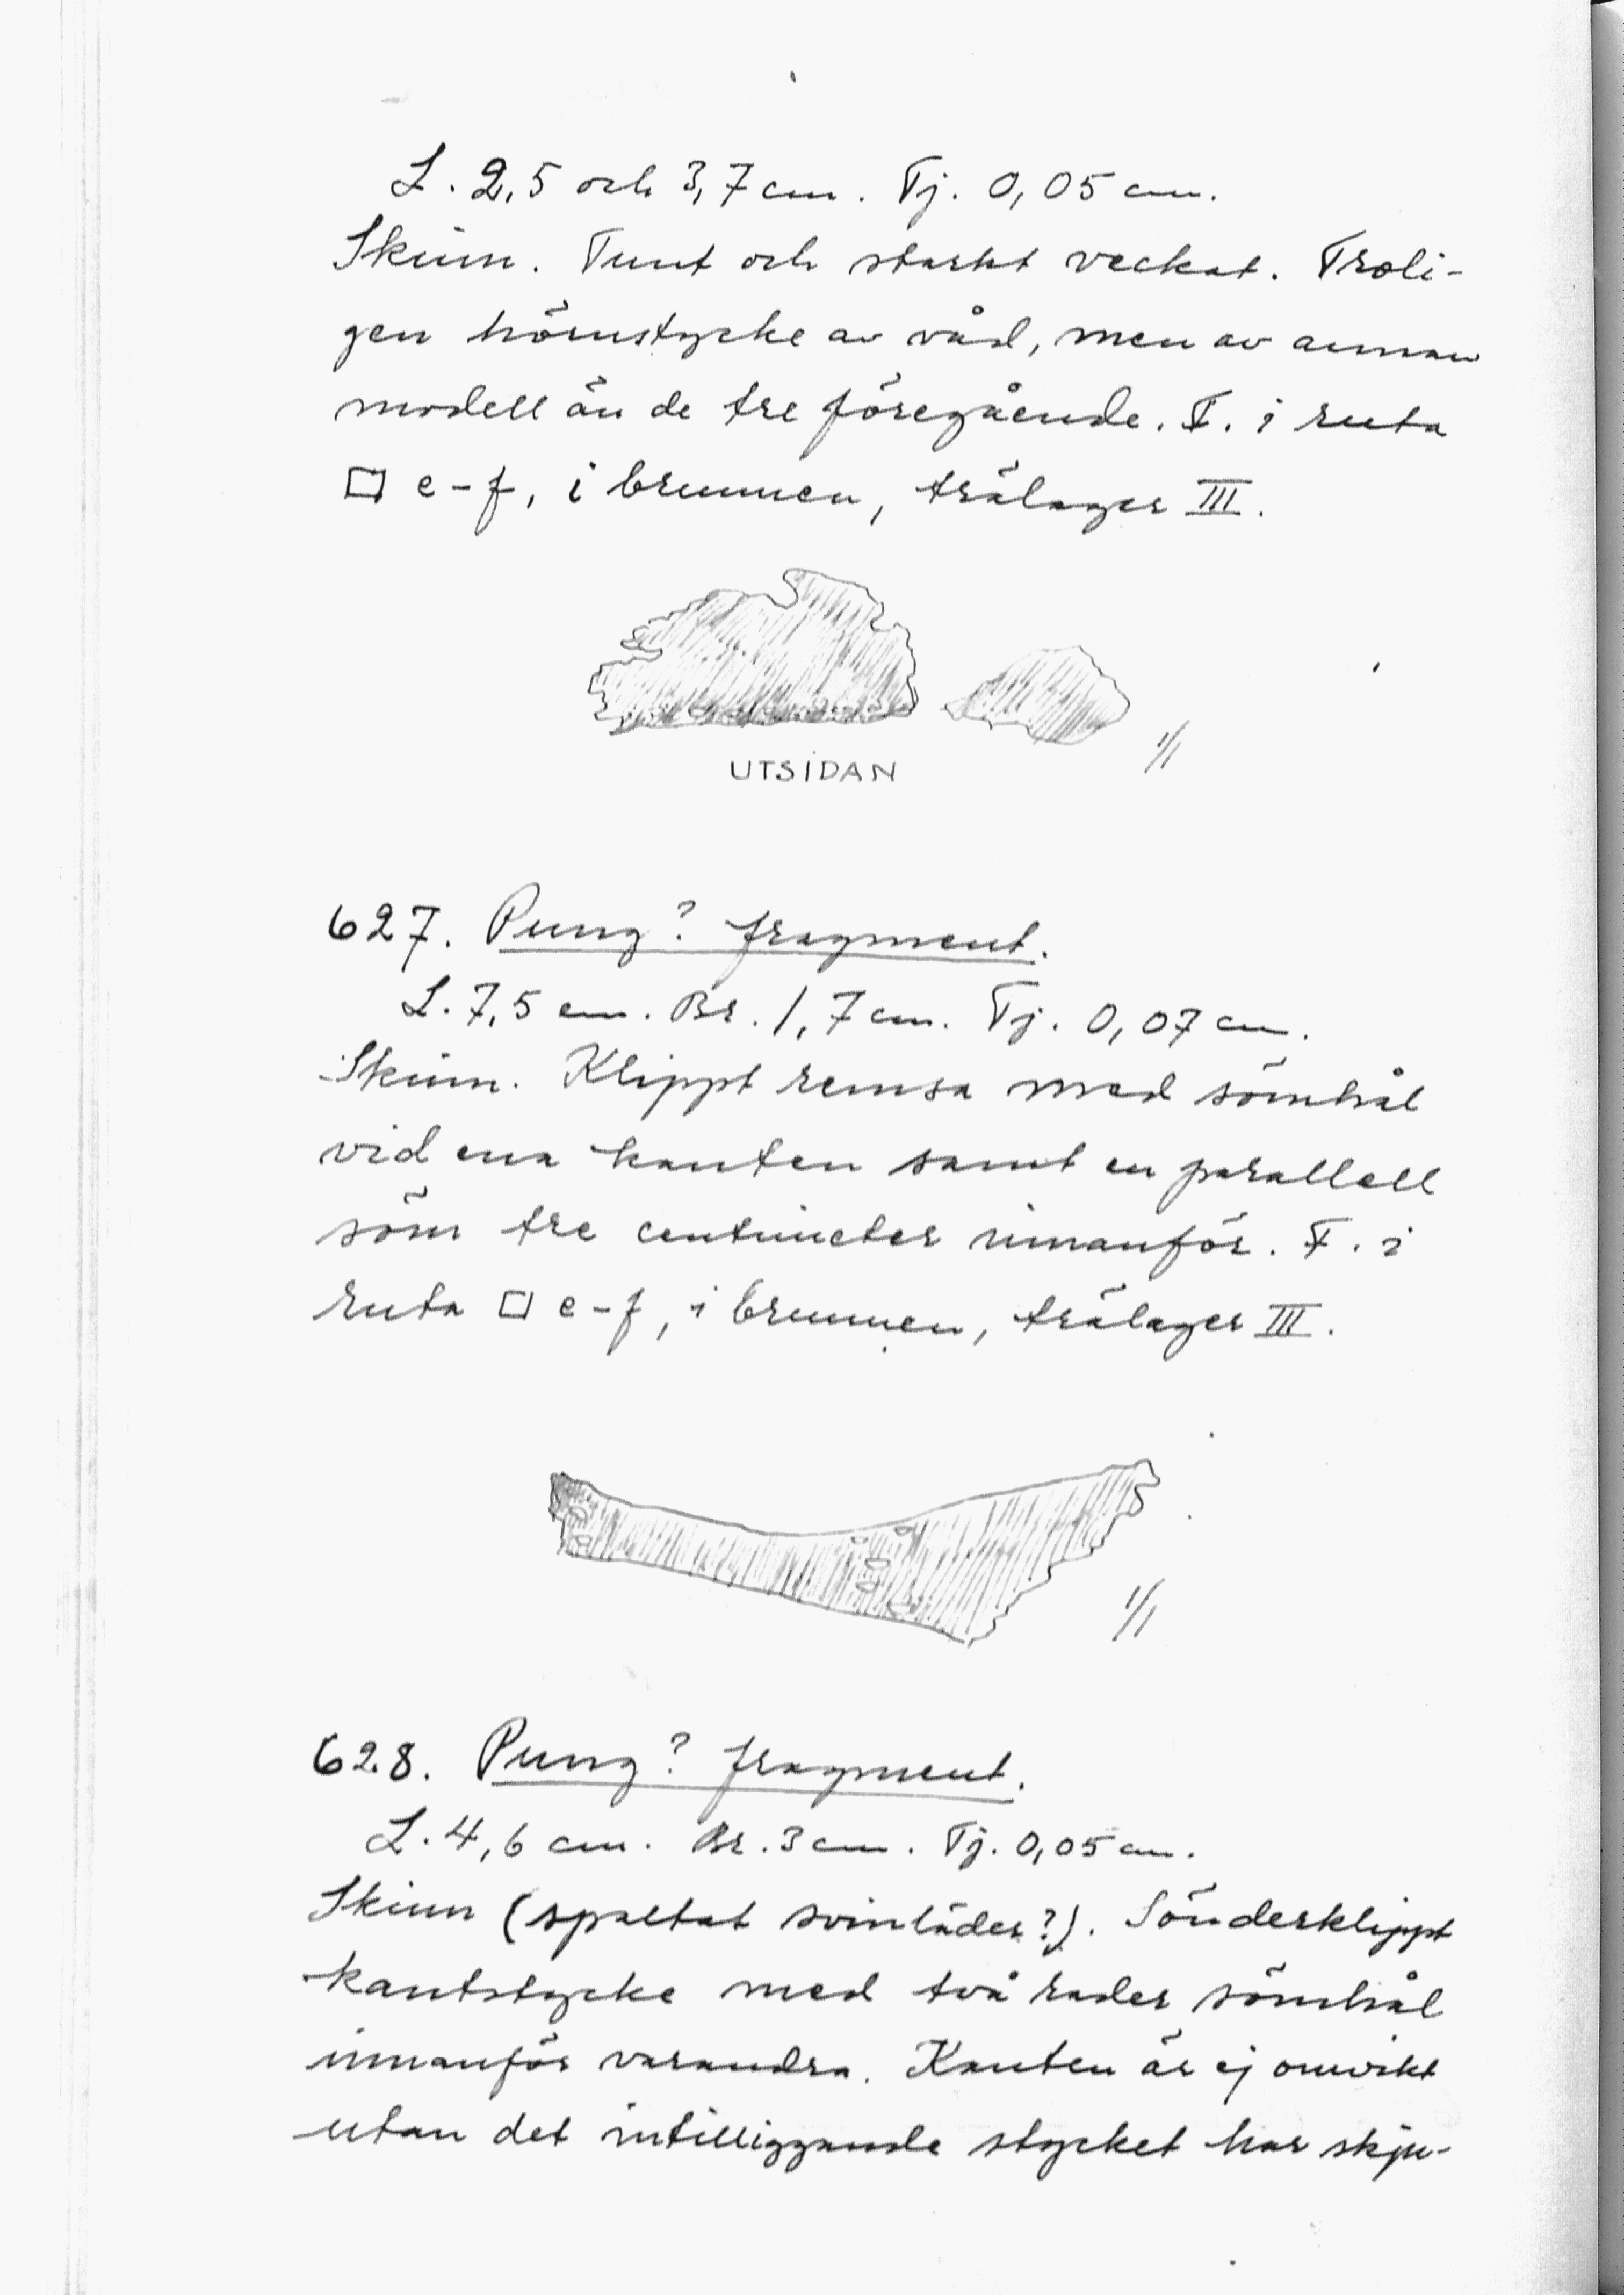 L. 2,5 och 3,7 cm. Tj. 0,05 cm.
Skinn. Tunt och starkt veckat. Troli-
gen hörnstycke av våd, men av annan
modell än de tre föregående. F. i ruta
□ e-f, i brunnen, trälager III.
UTSIDAN
1/1
627. Pung? fragment.
L. 7,5 cm. Br. 1,7 cm. Tj. 0,07 cm.
Skinn. Klippt remsa med sömhål
vid ena kanten samt en parallell
söm tre centimeter innanför. F. i
ruta □ e-f, i brunnen, trälager III.
1/1
628. Pung? fragment.
L. 4,6 cm. Br. 3 cm. Tj. 0,05 cm.
Skinn (spaltat svinläder?). Sönderklippt
kantstycke med två rader sömhål
innanför varandra. Kanten är ej omvikt
utan det intilliggande stycket har skju-